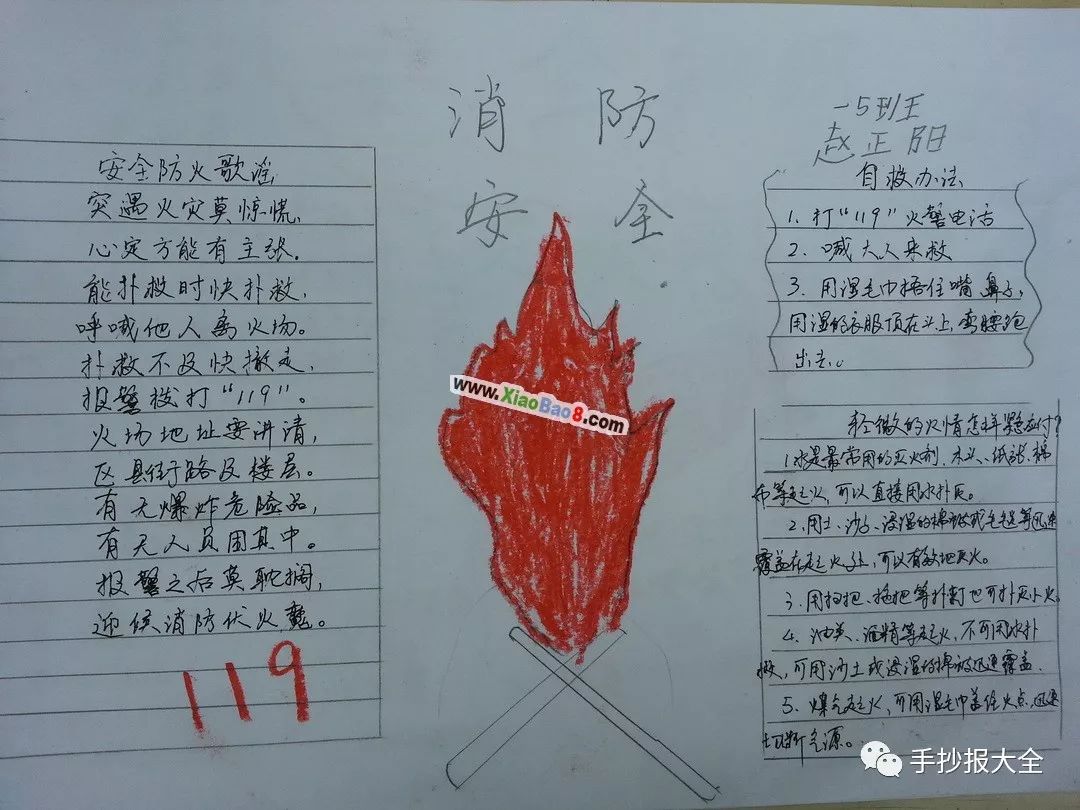 消 防
安 全
一5班王
赵正阳
安全防火歌谣
突遇火灾莫惊慌,
心定方能有主张.
能扑救时快扑救,
呼喊他人离火场。
扑救不及快撤走,
报警拨打“119”。
火场地址要讲清,
区县街路及楼层。
有无爆炸危险品,
有无人员困其中。
报警之后莫耽搁,
迎候消防伏火魔。
119
www.XiaoBao8.com
自救办法
1、打“119”火警电话
2、喊大人来救
3、用湿毛巾捂住嘴、鼻子,
用湿的衣服顶在头上,弯腰跑
出去。
轻微的火情怎样应付?
1水是最常用的灭火剂、木头、纸张、棉
布等起火,可以直接用水扑灭。
2、用土、沙子、浸湿的棉被或毛毯等迅速
覆盖在起火处,可以有效地灭火。
3、用扫把、拖把等扑打也可扑灭小火
4、油类、酒精等起火,不可用水扑
救,可用沙土或浸湿的棉被迅速覆盖.
5、煤气起火,可用湿毛巾盖住火点,迅速
切断气源。
手抄报大全